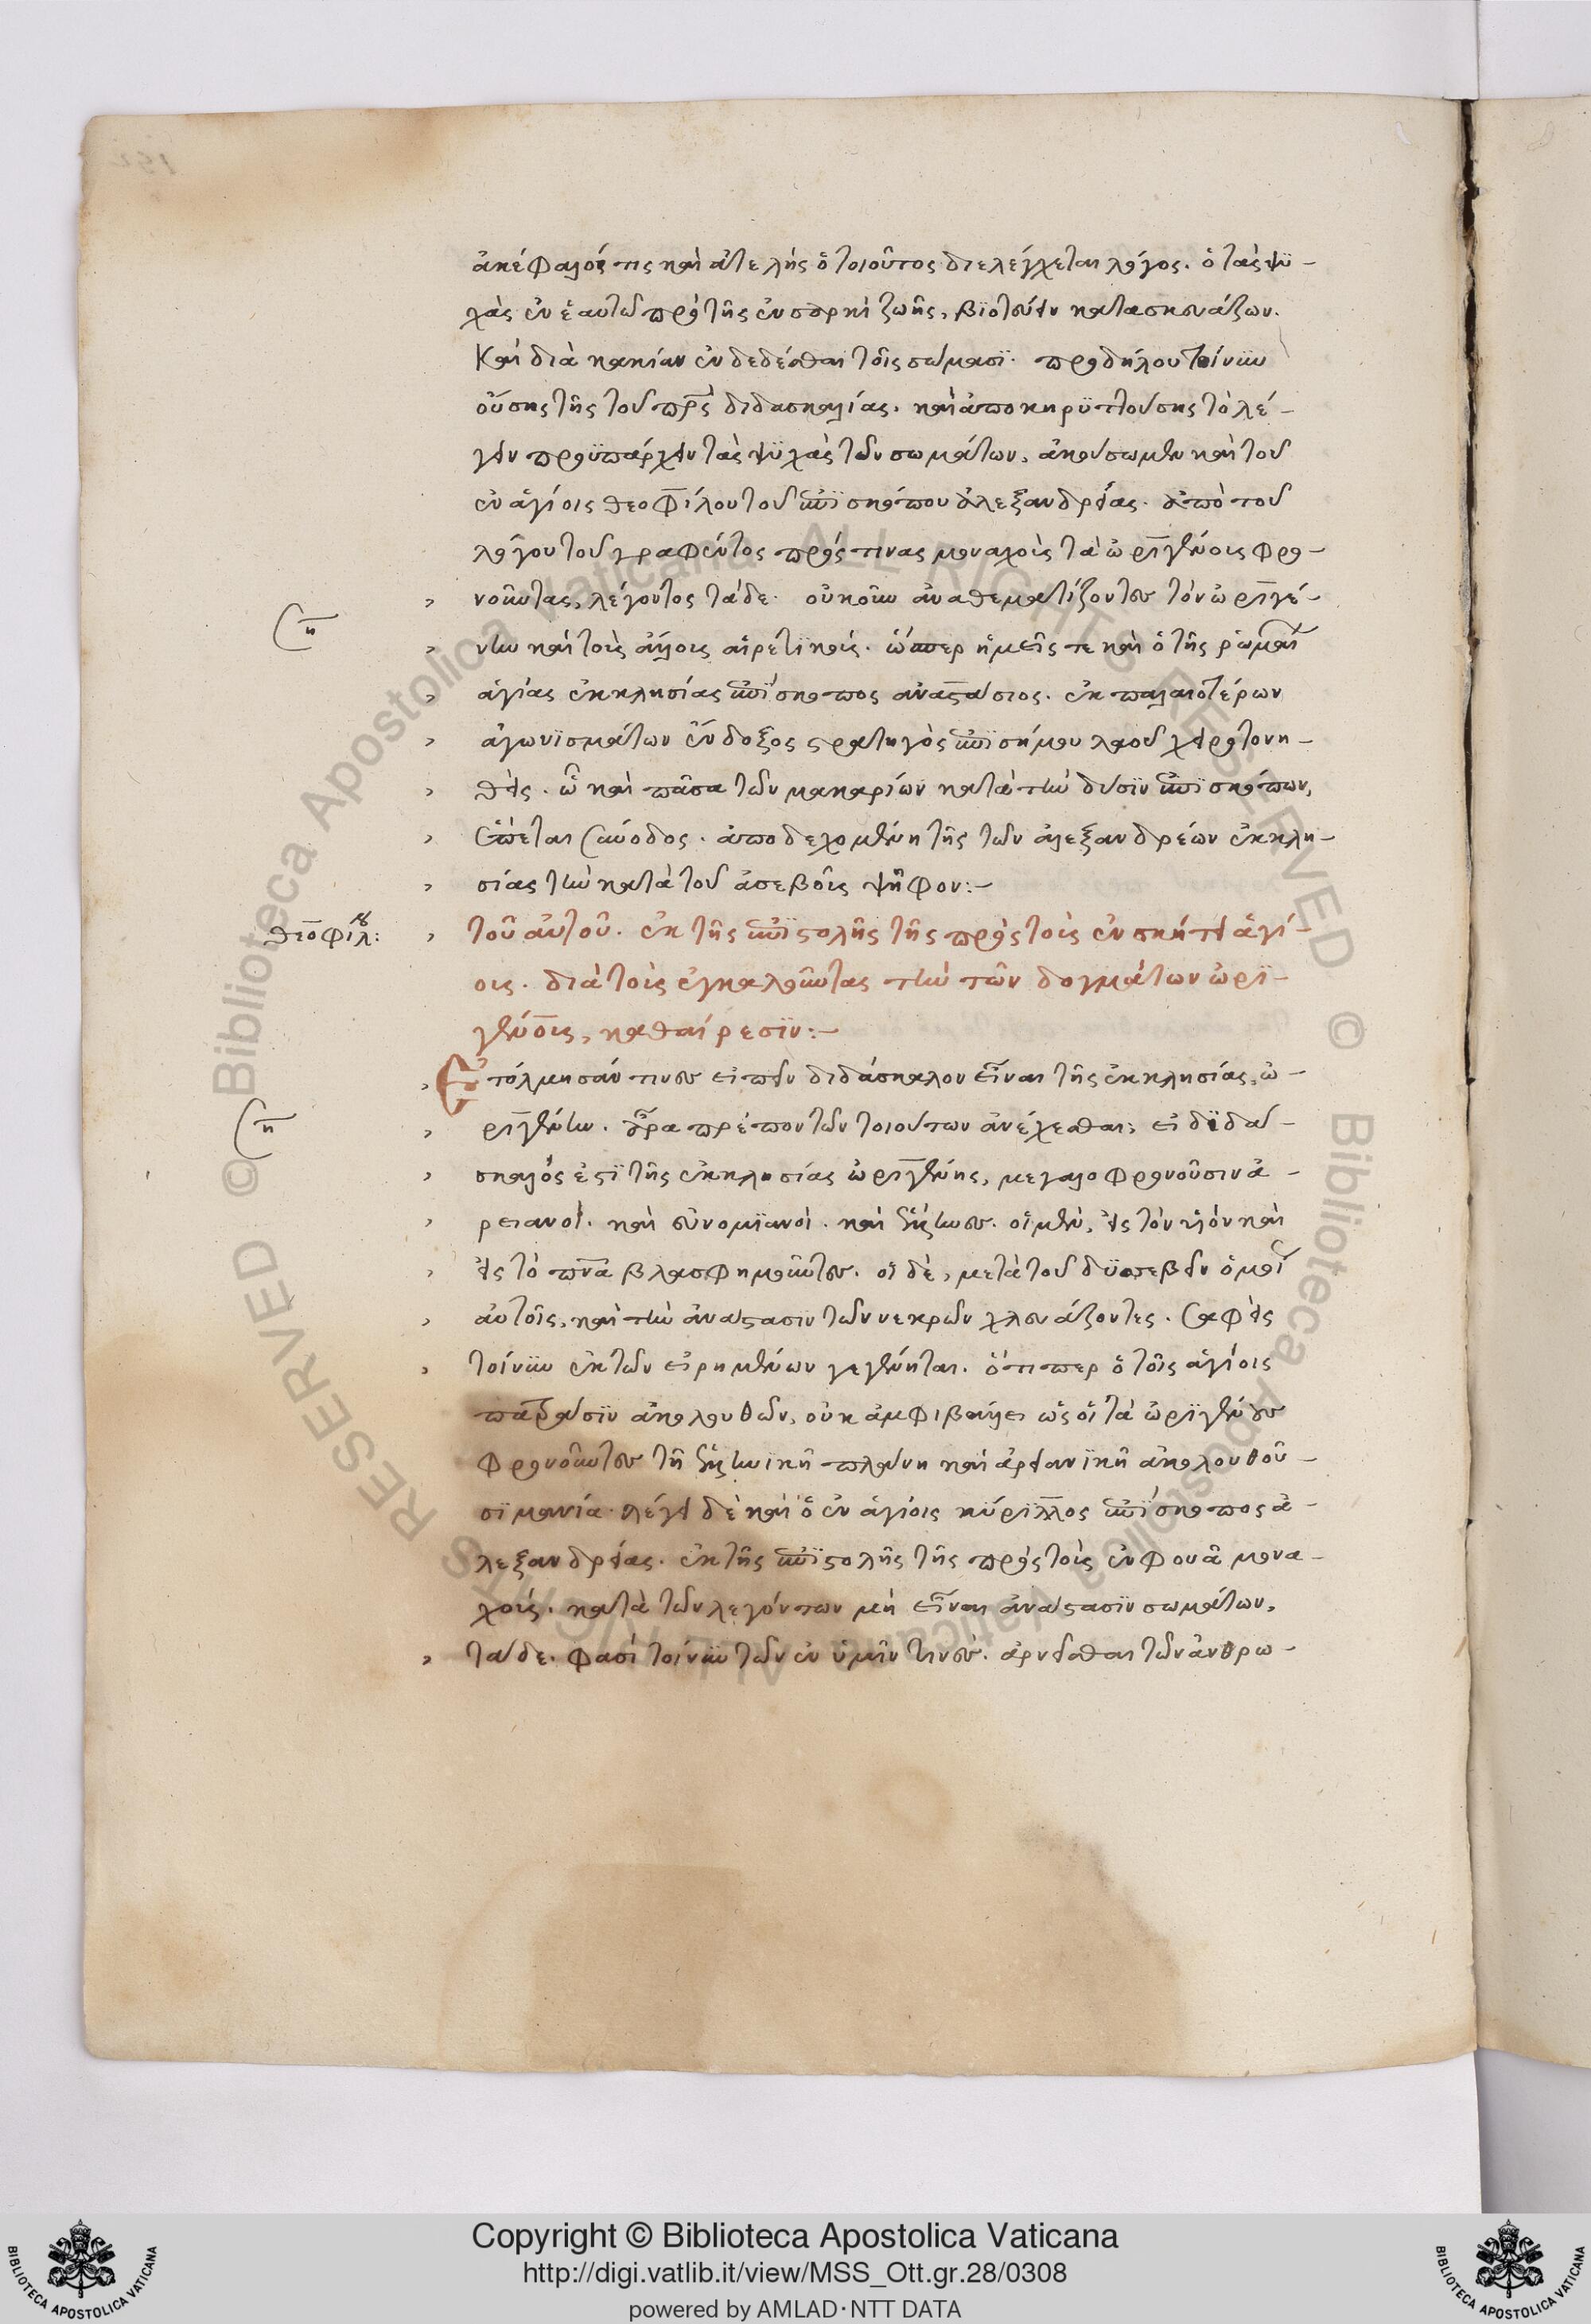 ἀκέφαλός τις καὶ ἀτελὴς ὁ τοιοῦτος διελέγχεται λόγος. ὁ τὰς ψυ-
χὰς ἐν ἑαυτῶ πρὸ τῆς ἐν σαρκὶ ζωῆς, βιοτεύειν κατασκευάζων.
Καὶ διὰ κακίαν ἐνδεδέσθαι τοῖς σώμασι. προδήλου τοίνυν
οὔσης τῆς τοῦ πρ̅ς διδασκαλίας. καὶ ἀποκηρυττούσης τὸ λέ-
γειν προϋπάρχειν τὰς ψυχὰς τῶν σωμάτων, ἀκούσωμεν καὶ τοῦ
ἐν ἁγίοις θεοφίλου τοῦ ἐπισκόπου ἀλεξανδρείας. ἀπὸ τοῦ
λόγου τοῦ γραφέντος πρός τινας μοναχοὺς τὰ ὠριγένους φρο-
νοῦντας, λέγοντος τάδε. οὐκοῦν ἀναθεματίζοντες τὸν ὠριγέ-
νην καὶ τοὺς ἄλλους αἱρετικούς. ὥσπερ ἡμεῖς τε καὶ ὁ τῆς ῥωμαί
ἁγίας ἐκκλησίας ἐπίσκοπος ἀναστάσιος. ἐκ παλαιοτέρων
ἀγωνισμάτων ἔνδοξος στρατηγὸς ἐπισήμου λαοῦ χειροτονη-
θείς. ὧ καὶ πᾶσα τῶν μακαρίων κατὰ τὴν δύσιν ἐπισκόπων,
ἕπεται σύνοδος. ἀποδεχομένη τῆς τῶν ἀλεξανδρέων ἐκκλη-
σίας τὴν κατὰ τοῦ ἀσεβοῦς ψῆφον:-
θεοφίλ:
τοῦ αὐτοῦ. ἐκ τῆς ἐπιστολῆς τῆς πρὸς τοὺς ἐν σκήτει ἁγί-
ους. διὰ τοὺς ἐγκαλοῦντας τὴν τῶν δογμάτων ὠρι-
γένους, καθαίρεσιν:-
Ἐτόλμησάν τινες εἰπεῖν διδάσκαλον εἶναι τῆς ἐκκλησίας, ὠ-
ριγένην. ἆρα πρέπον τῶν τοιούτων ἀνέχεσθαι; εἰ διδά-
σκαλός ἐστι τῆς ἐκκλησίας ὠριγένης, μεγαλοφρονοῦσιν ἀ-
ρειανοί. καὶ εὐνομιανοί. καὶ ἕλληνες. οἱ μὲν, εἰς τὸν υἱὸν καὶ
εἰς τὸ πν̅α βλασφημοῦντες. οἱ δὲ, μετὰ τοῦ δυσσεβεῖν ὁμοί
αὐτοῖς, καὶ τὴν ἀνάστασιν τῶν νεκρῶν χλευάζοντες. σαφὲς
τοίνυν ἐκ τῶν εἰρημένων γεγένηται. ὅτι περ ὁ τοῖς ἁγίοις
πατράσιν ἀκολουθῶν, οὐκ ἀμφιβάλλει ὡς οἱ τὰ ὠριγένους
φρονοῦντες τῆ ἑλληνικῆ πλάνη καὶ ἀρειανικῆ ἀκολουθοῦ-
σι μανία. λέγει δὲ καὶ ὁ ἐν ἁγίοις κύριλλος ἐπίσκοπος ἀ-
λεξανδρείας. ἐκ τῆς ἐπιστολῆς τῆς πρὸς τοὺς ἐν φουᾶ μονα-
χούς. κατὰ τῶν λεγόντων μὴ εἶναι ἀνάστασιν σωμάτων,
τάδε. φασὶ τοίνυν τῶν ἐν ὑμῖν τινές. ἀρνεῖσθαι τῶν ἀνθρω-
Copyright © Biblioteca Apostolica Vaticana
http://digi.vatlib.it/view/MSS_Ott.gr.28/0308
powered by AMLAD·NTT DATA